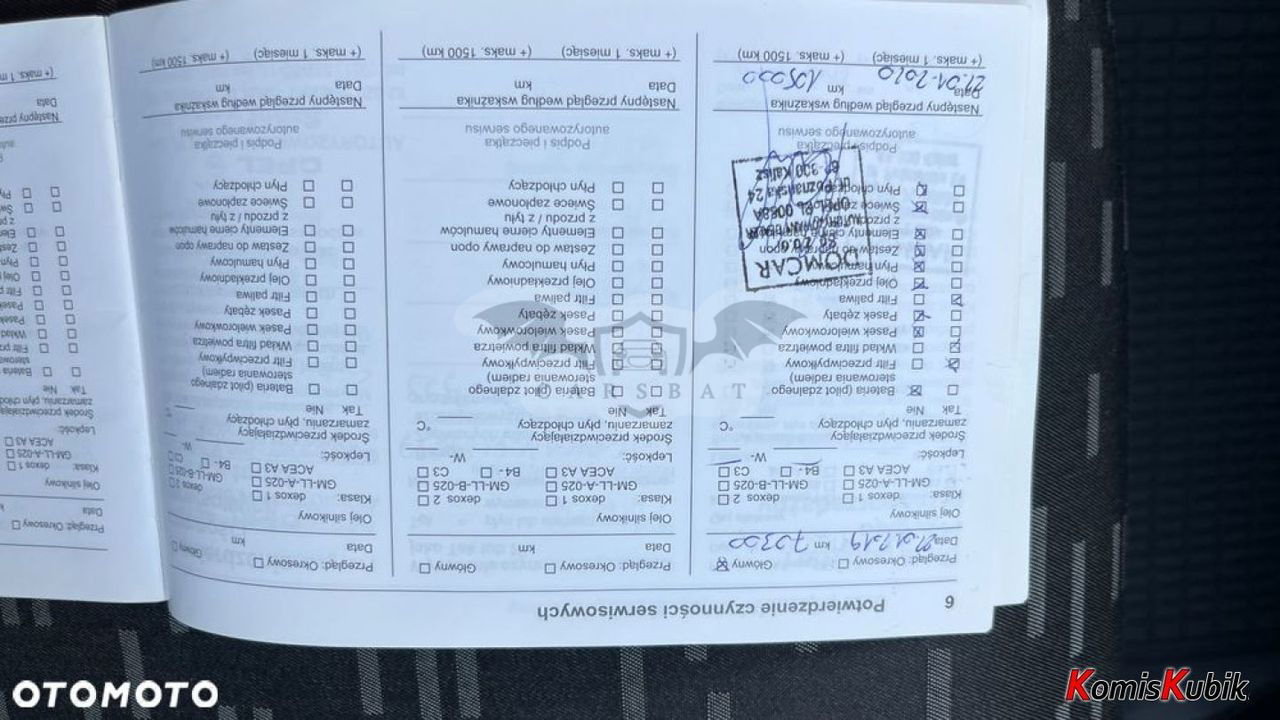 6 Potwierdzenie czynności serwisowych
Przegląd: Okresowy Główny
Data 21.01.2019 km 70300
Olej silnikowy
Klasa: dexos 1 dexos 2
GM-LL-A-025 GM-LL-B-025
ACEA A3 B4 - C3
Lepkość: W-
Środek przeciwdziałający
zamarzaniu, płyn chłodzący °C
Tak Nie
Bateria (pilot zdalnego
sterowania radiem)
Filtr przeciwpyłkowy
Wkład filtra powietrza
Pasek wielorowkowy
Pasek zębaty
Filtr paliwa
Olej przekładniowy
Płyn hamulcowy
Zestaw do naprawy opon
Elementy cierne
z przodu
Świece
Płyn chłodzący
DOMCAR
OPEL PL 0068A
Ul. Poznańska 24
Kalisz
Podpis i pieczątka
autoryzowanego serwisu
Następny przegląd według wskaźnika
Data km
21.01.2020 105000
(+ maks. 1 miesiąc) (+ maks. 1500 km)
Przegląd: Okresowy Główny
Data km
Olej silnikowy
Klasa: dexos 1 dexos 2
GM-LL-A-025 GM-LL-B-025
ACEA A3 B4 - C3
Lepkość: W-
Środek przeciwdziałający
zamarzaniu, płyn chłodzący °C
Tak Nie
Bateria (pilot zdalnego
sterowania radiem)
Filtr przeciwpyłkowy
Wkład filtra powietrza
Pasek wielorowkowy
Pasek zębaty
Filtr paliwa
Olej przekładniowy
Płyn hamulcowy
Zestaw do naprawy opon
Elementy cierne hamulców
z przodu / z tyłu
Świece zapłonowe
Płyn chłodzący
Podpis i pieczątka
autoryzowanego serwisu
Następny przegląd według wskaźnika
Data km
(+ maks. 1 miesiąc) (+ maks. 1500 km)
Przegląd: Okresowy Główny
Data km
Olej silnikowy
Klasa: dexos 1 dexos 2
GM-LL-A-025 GM-LL-B-025
ACEA A3 B4 - C3
Lepkość: W-
Środek przeciwdziałający
zamarzaniu, płyn chłodzący °C
Tak Nie
Bateria (pilot zdalnego
sterowania radiem)
Filtr przeciwpyłkowy
Wkład filtra powietrza
Pasek wielorowkowy
Pasek zębaty
Filtr paliwa
Olej przekładniowy
Płyn hamulcowy
Zestaw do naprawy opon
Elementy cierne hamulców
z przodu / z tyłu
Świece zapłonowe
Płyn chłodzący
Podpis i pieczątka
autoryzowanego serwisu
Następny przegląd według wskaźnika
Data km
(+ maks. 1 miesiąc) (+ maks. 1500 km)
Przegląd: Okresowy
Data
Olej silnikowy
Klasa: dexos 1
GM-LL-A-025
ACEA A3
Lepkość:
Środek
zamarzaniu, płyn
Tak Nie
Bateria
Filtr
Wkład
Pasek
Olej
Płyn
Zestaw
Następny
Data
(+ maks. 1
CARSBAT
OTOMOTO
KomisKubik